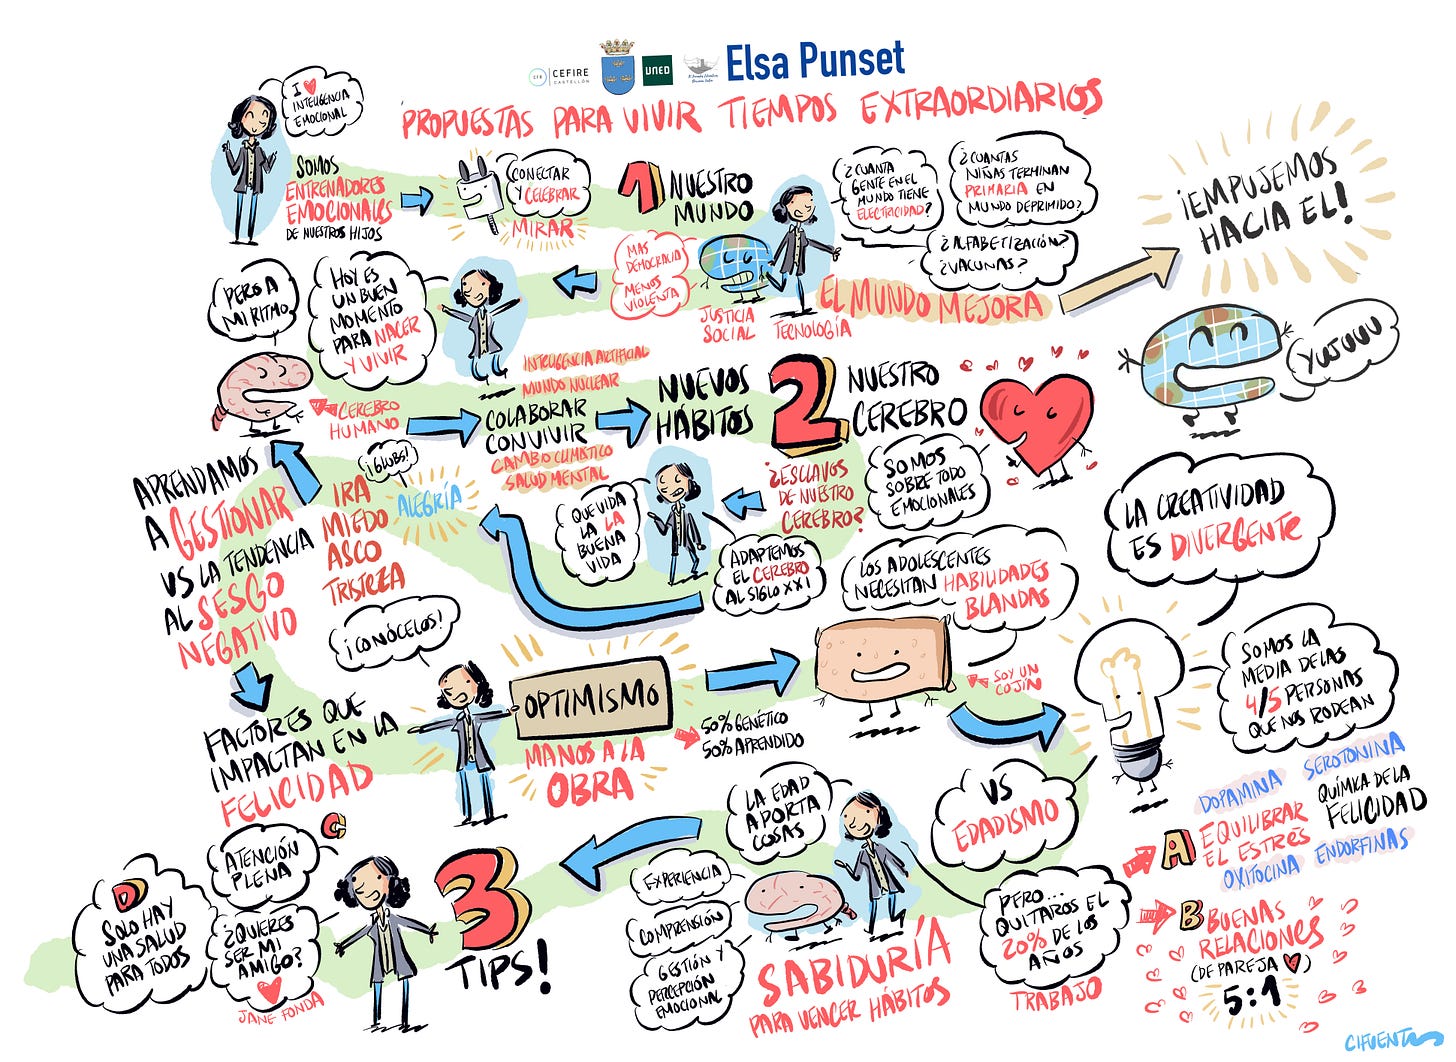 CEFIRE
CASTELLÓN
UNED
Elsa Punset
PROPUESTAS PARA VIVIR TIEMPOS EXTRAORDIARIOS
I
INTELIGENCIA
EMOCIONAL
SOMOS
ENTRENADORES
EMOCIONALES
DE NUESTROS HIJOS
CONECTAR
Y CELEBRAR
MIRAR
1 NUESTRO
MUNDO
¿CUANTA
GENTE EN EL
MUNDO TIENE
ELECTRICIDAD?
¿CUANTAS
NIÑAS TERMINAN
PRIMARIA EN
MUNDO DEPRIMIDO?
¿ALFABETIZACIÓN?
¿VACUNAS?
MAS
DEMOCRACIA
MENOS
VIOLENTA
JUSTICIA
SOCIAL
TECNOLOGÍA
EL MUNDO MEJORA
¡EMPUJEMOS
HACIA EL!
YUJUUU
HOY ES
UN BUEN
MOMENTO
PARA NACER
Y VIVIR
PERO A
MI RITMO
CEREBRO
HUMANO
INTELIGENCIA ARTIFICIAL
MUNDO NUCLEAR
COLABORAR
CONVIVIR
CAMBIO CLIMÁTICO
SALUD MENTAL
NUEVOS
HÁBITOS
2 NUESTRO
CEREBRO
SOMOS
SOBRE TODO
EMOCIONALES
¿ESCLAVOS
DE NUESTRO
CEREBRO?
QUE VIDA
LA LA
BUENA
VIDA
ADAPTEMOS
EL CEREBRO
AL SIGLO XXI
¡GLUBS!
ALEGRÍA
IRA
MIEDO
ASCO
TRISTEZA
APRENDAMOS
A GESTIONAR
VS LA TENDENCIA
AL SESGO
NEGATIVO
FACTORES QUE
IMPACTAN EN LA
FELICIDAD
¡CONÓCELOS!
OPTIMISMO
MANOS A LA
OBRA
50% GENÉTICO
50% APRENDIDO
LOS ADOLESCENTES
NECESITAN HABILIDADES
BLANDAS
SOY UN
COJÍN
LA CREATIVIDAD
ES DIVERGENTE
SOMOS LA
MEDIA DE LAS
4/5 PERSONAS
QUE NOS RODEAN
VS
EDADISMO
LA EDAD
APORTA
COSAS
EXPERIENCIA
COMPRENSIÓN
GESTIÓN Y
PERCEPCIÓN
EMOCIONAL
SABIDURÍA
PARA VENCER HÁBITOS
PERO...
QUITAROS EL
20% DE LOS
AÑOS
TRABAJO
3
TIPS!
A EQUILIBRAR
EL ESTRÉS
DOPAMINA
SEROTONINA
QUÍMICA DE LA
FELICIDAD
OXITOCINA
ENDORFINAS
B BUENAS
RELACIONES
(DE PAREJA)
5:1
C
ATENCIÓN
PLENA
¿QUIERES
SER MI
AMIGO?
JANE FONDA
D
SOLO HAY
UNA SALUD
PARA TODOS
CIFUENTES